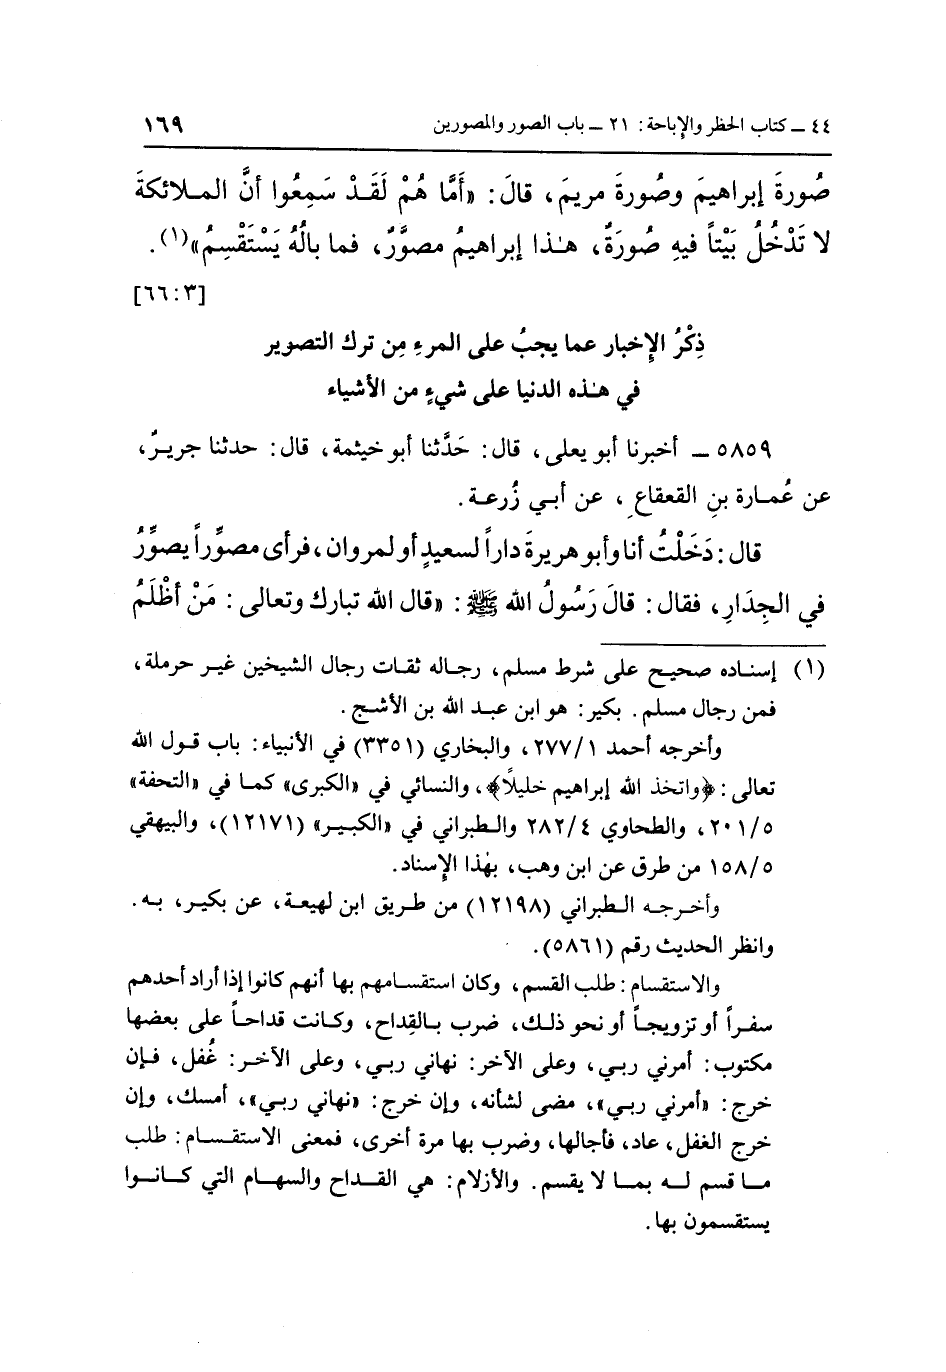 ٤٤ ــ كتاب الحظر والإباحة: ٢١ ــ باب الصور والمصورين ١٦٩
صُورةَ إبراهيمَ وصُورةَ مريمَ، قالَ: «أَمَّا هُمْ لَقَـدْ سَمِعُوا أنَّ المـلائكةَ
لا تَدْخُلُ بَيْتاً فيهِ صُورَةٌ، هـٰذا إبراهيمُ مصوَّرٌ، فما بالُهُ يَسْتَقْسِمُ»(١).
[٣:٦٦]
ذِكْرُ الإِخبار عما يجبُ على المرءِ مِن ترك التصوير
في هـٰذه الدنيا على شيءٍ من الأشياء
٥٨٥٩ ــ أخبرنا أبو يعلى، قال: حَدَّثنا أبو خيثمة، قال: حدثنا جريرٌ،
عن عُمـارة بنِ القعقاعِ، عن أبـي زُرعـة.
قال: دَخَلْتُ أنا وأبو هريرةَ داراً لسعيدٍ أو لمروان، فرأى مصوِّراً يصوِّرُ
في الجِدَارِ، فقال: قالَ رَسُولُ الله ﷺ: «قال الله تبارك وتعالى: مَنْ أظْلَمُ
(١) إسنـاده صحيـح على شرط مسلم، رجـاله ثقـات رجال الشيخين غيـر حرملة،
فمن رجال مسلم. بكير: هو ابن عبـد الله بن الأشـج.
وأخرجه أحمد ٢٧٧/١، والبخاري (٣٣٥١) في الأنبياء: باب قـول الله
تعالى: ﴿واتخذ الله إبراهيم خليلاً﴾، والنسائي في «الكبرى» كمـا في «التحفة»
٢٠١/٥، والطحاوي ٢٨٢/٤ والـطبراني في «الكبـيـر» (١٢١٧١)، والبيهقي
١٥٨/٥ من طرق عن ابن وهب، بهٰذا الإسناد.
وأخـرجـه الـطبراني (١٢١٩٨) من طـريق ابن لهيعـة، عن بكيـر، بـه.
وانظر الحديث رقم (٥٨٦١).
والاستقسام: طلب القسم، وكان استقسـامهم بها أنهم كانوا إذا أراد أحدهم
سفـراً أو تزويجـاً أو نحو ذلـك، ضرب بـالقِداح، وكـانت قداحـاً على بعضها
مكتوب: أمرني ربـي، وعلى الآخر: نهاني ربـي، وعلى الآخـر: غُفل، فـإن
خرج: «أمرني ربـي»، مضى لشأنه، وإن خرج: «نهاني ربـي»، أمسك، وإن
خرج الغفل، عاد، فأجالها، وضرب بها مرة أخرى، فمعنى الاستقسـام: طلب
مـا قسم لـه بمـا لا يقسم. والأزلام: هي القـداح والسهـام التي كـانـوا
يستقسمون بها.